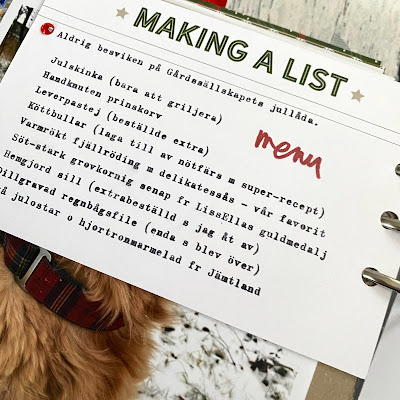 MAKING A LIST
Aldrig besviken på Gårdssällskapets jullåda.
menu
Julskinka (bara att griljera)
Handknuten prinskorv
Leverpastej (beställde extra)
Köttbullar (laga till av nötfärs m super-recept)
Varmrökt fjällröding m delikatessås - vår favorit
Söt-stark grovkornig senap fr LissEllas guldmedalj
Hemgjord sill (extrabeställd s jag åt av)
Dillgravad regnbågsfile (enda s blev över)
julostar o hjortronmarmelad fr Jämtland